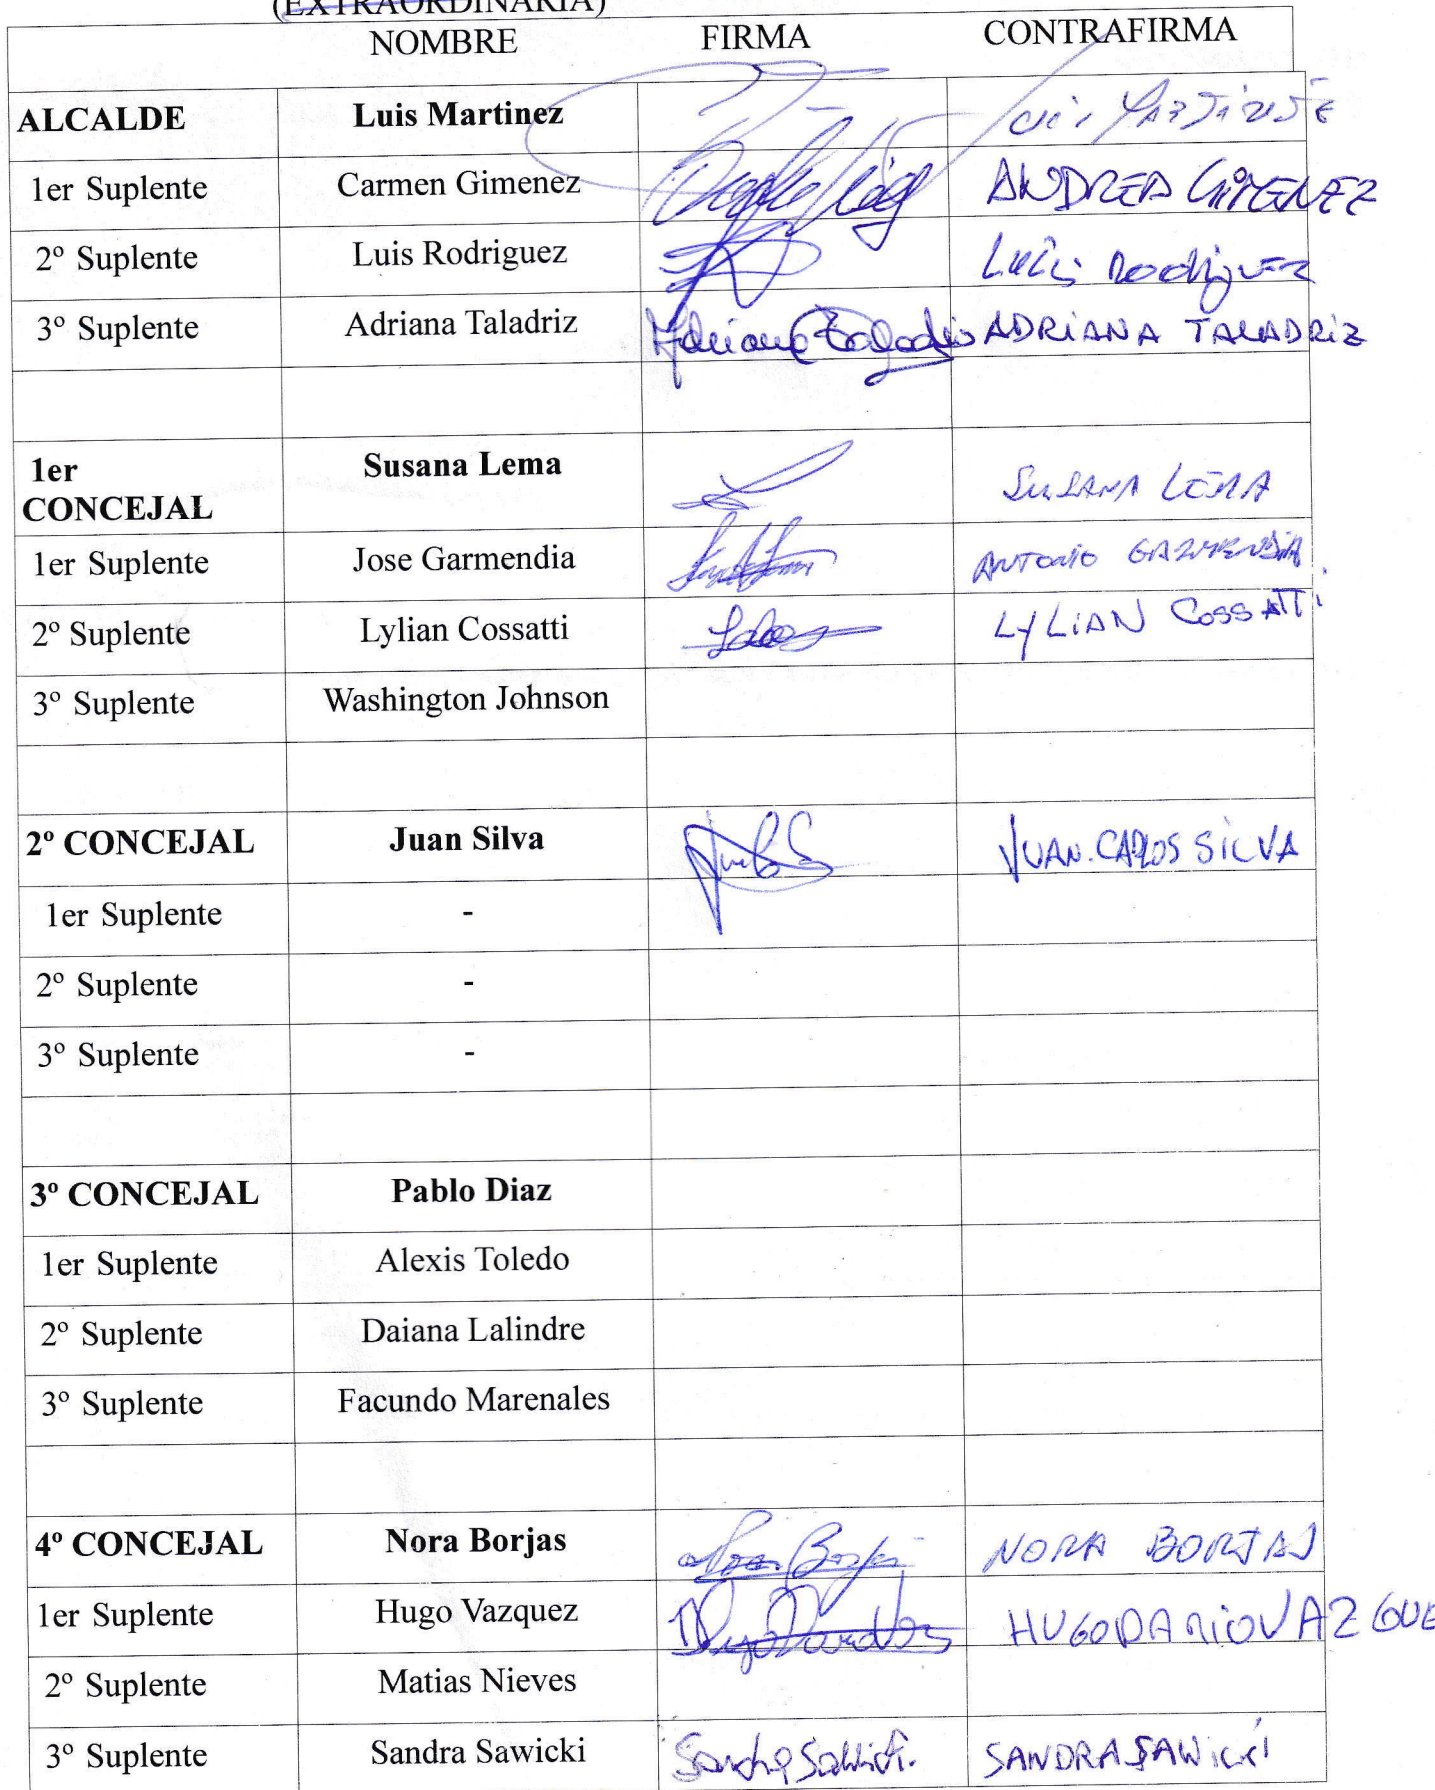 (EXTRAORDINARIA)
NOMBRE FIRMA CONTRAFIRMA
ALCALDE Luis Martinez
1er Suplente Carmen Gimenez ANDREA GIMENEZ
2º Suplente Luis Rodriguez Luis Rodriguez
3º Suplente Adriana Taladriz Adriana Taladriz ADRIANA TALADRIZ
1er Susana Lema SUSANA LEMA
CONCEJAL
1er Suplente Jose Garmendia ANTONIO GARMENDIA
2º Suplente Lylian Cossatti LYLIAN COSSATTI
3º Suplente Washington Johnson
2º CONCEJAL Juan Silva JUAN.CARLOS SILVA
1er Suplente -
2º Suplente -
3º Suplente -
3º CONCEJAL Pablo Diaz
1er Suplente Alexis Toledo
2º Suplente Daiana Lalindre
3º Suplente Facundo Marenales
4º CONCEJAL Nora Borjas Nora Borjas NORA BORJAS
1er Suplente Hugo Vazquez HUGO DARIO VAZQUE
2º Suplente Matias Nieves
3º Suplente Sandra Sawicki Sandra Sawicki SANDRA SAWICKI